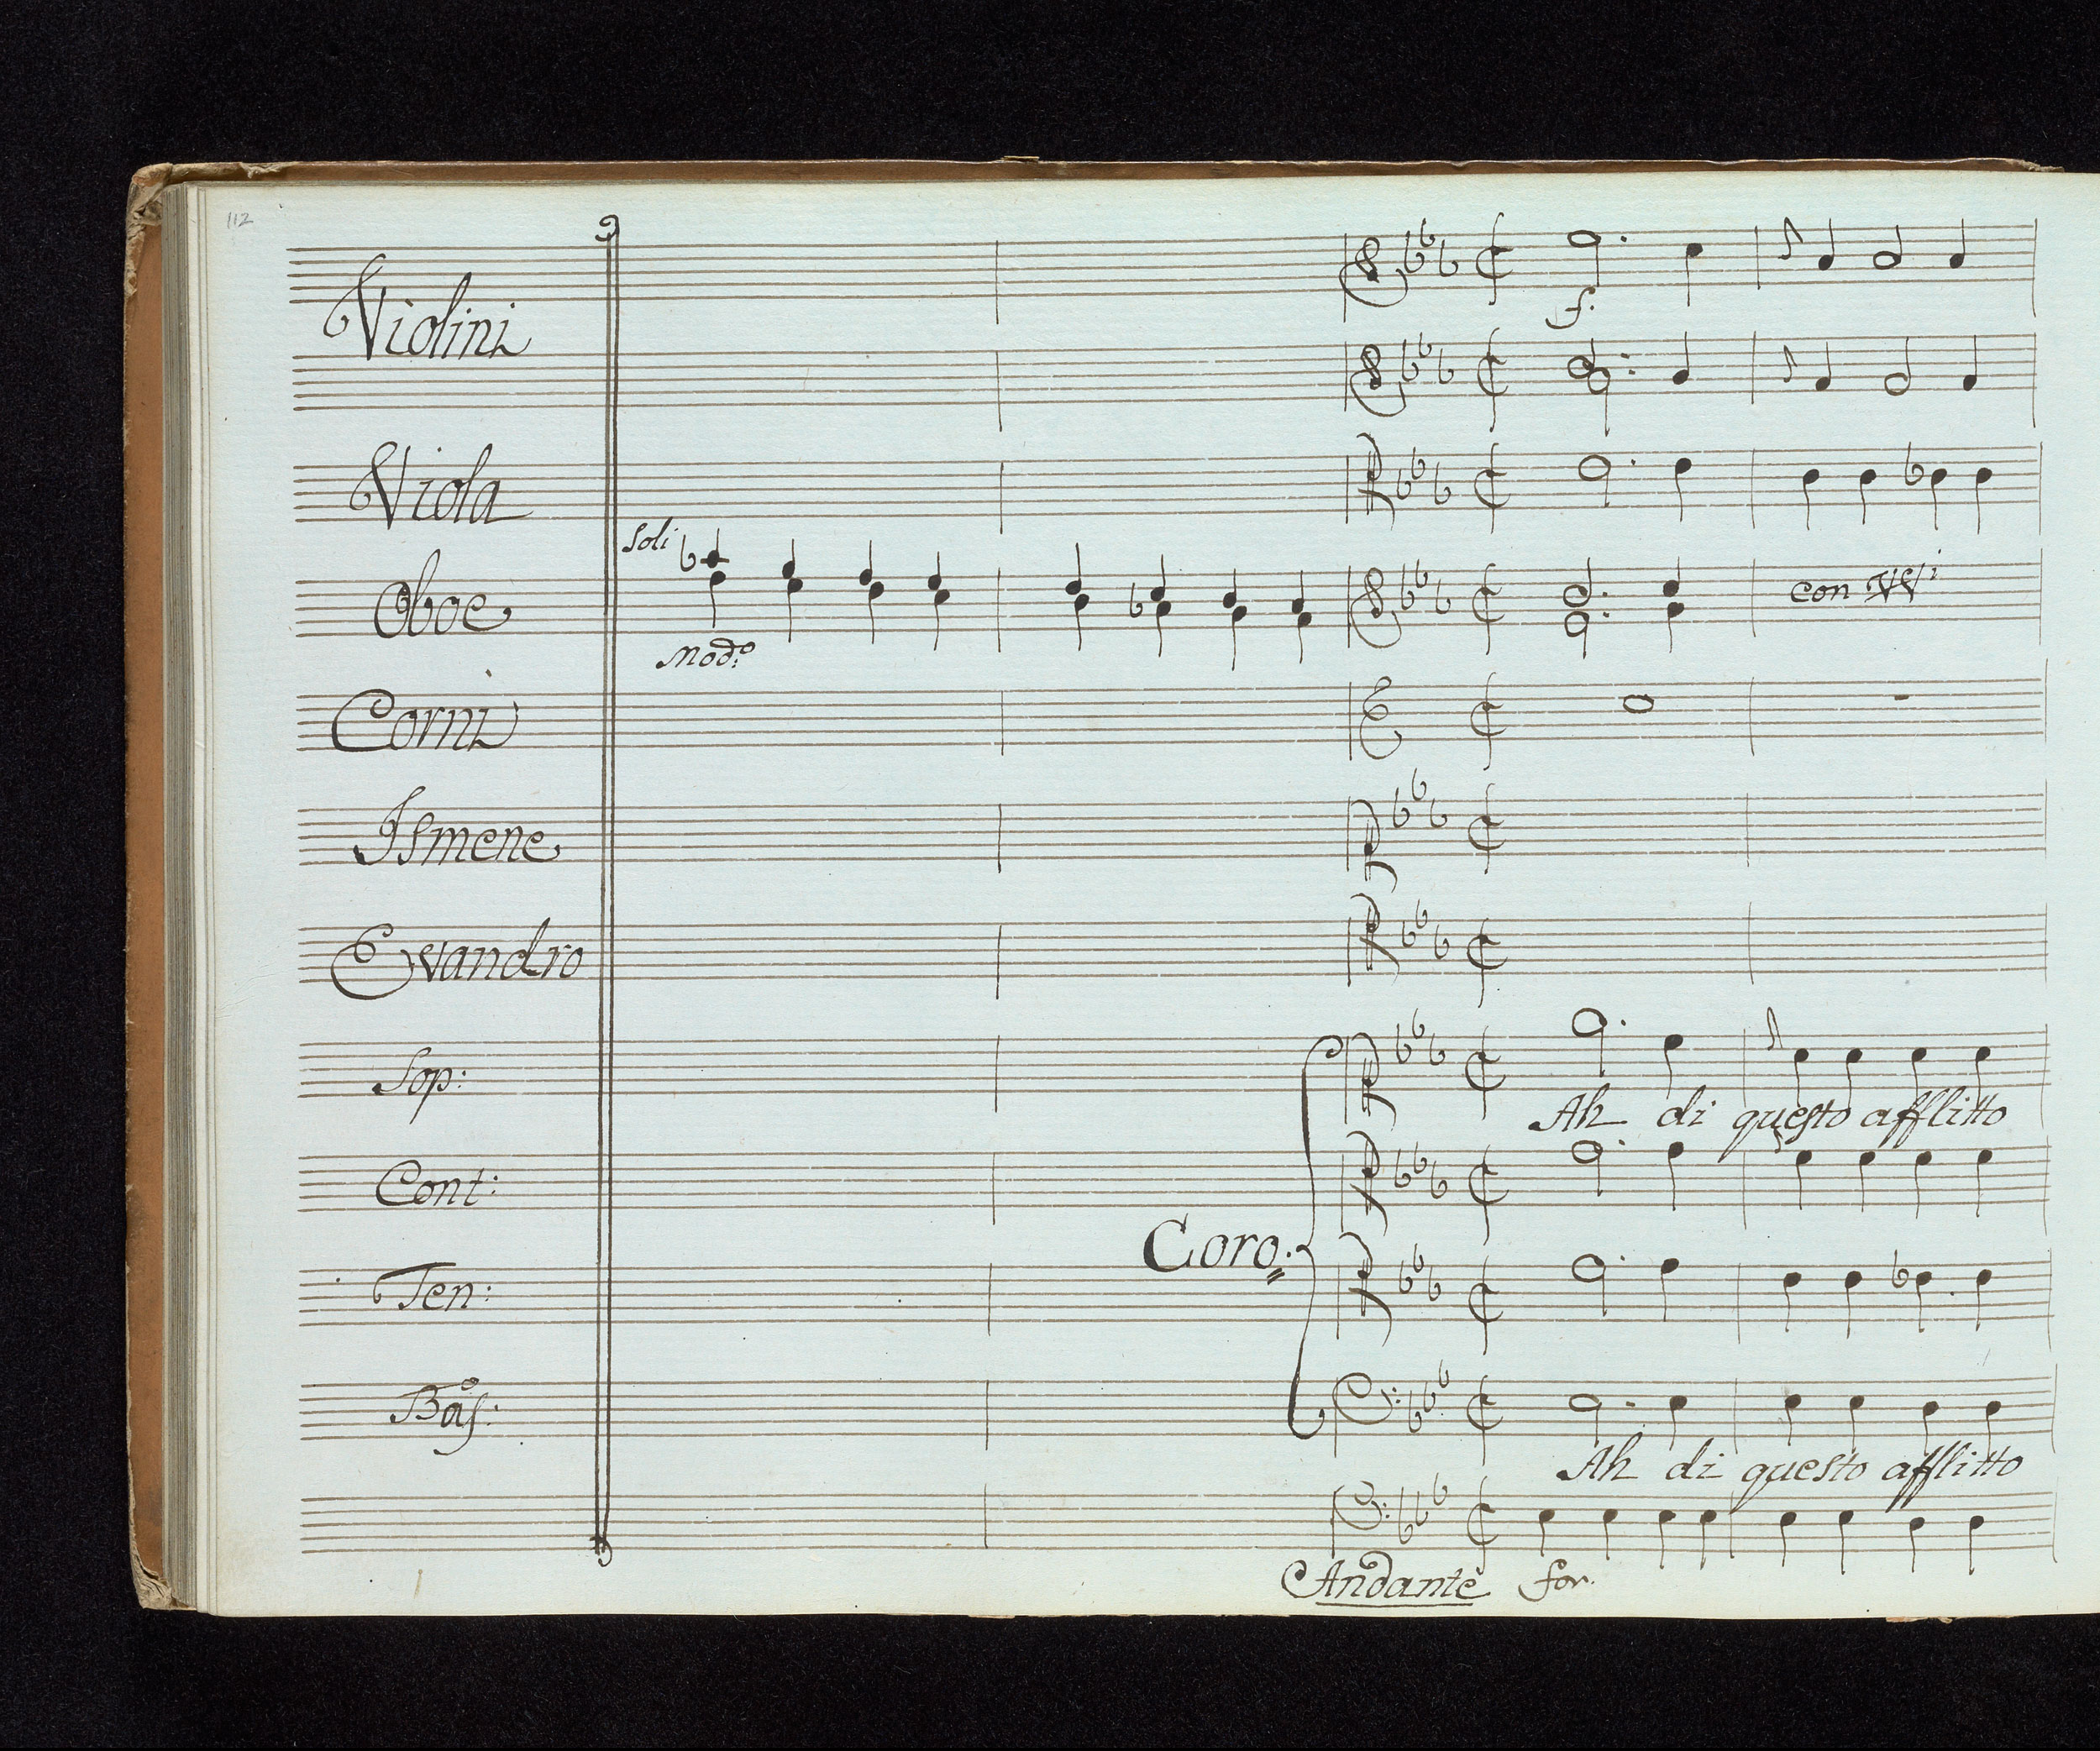 112
Violini
f.
Viola
Soli
Oboe
Mod:o
con VVi
Corni
Ismene
Evandro
Sop:
Ah di questo afflitto
Cont:
Coro.
Ten:
Bas:
Ah di questo afflitto
Andante for.